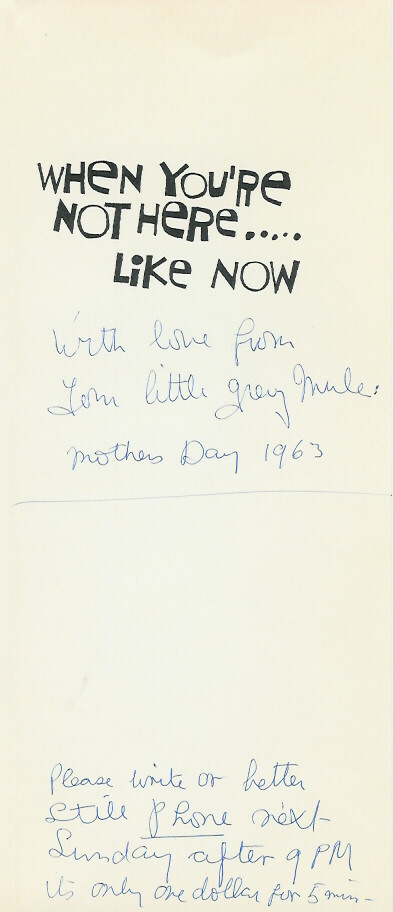 WHEN YOU'RE
NOT HERE.....
LIKE NOW
With love from
Your little grey Mule:
Mothers Day 1963
Please write or better
still Phone next
Sunday after 9 PM
its only one dollar for 5 min-